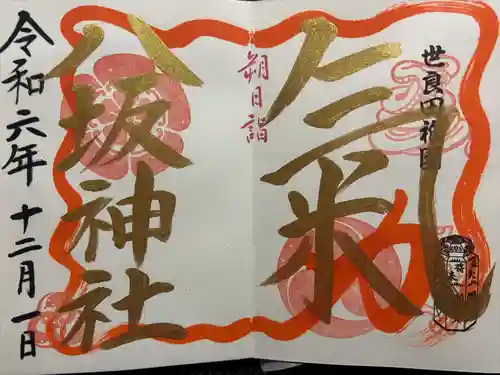 世良四祇園
氣
朔日詣
八坂神社
令和六年十二月一日